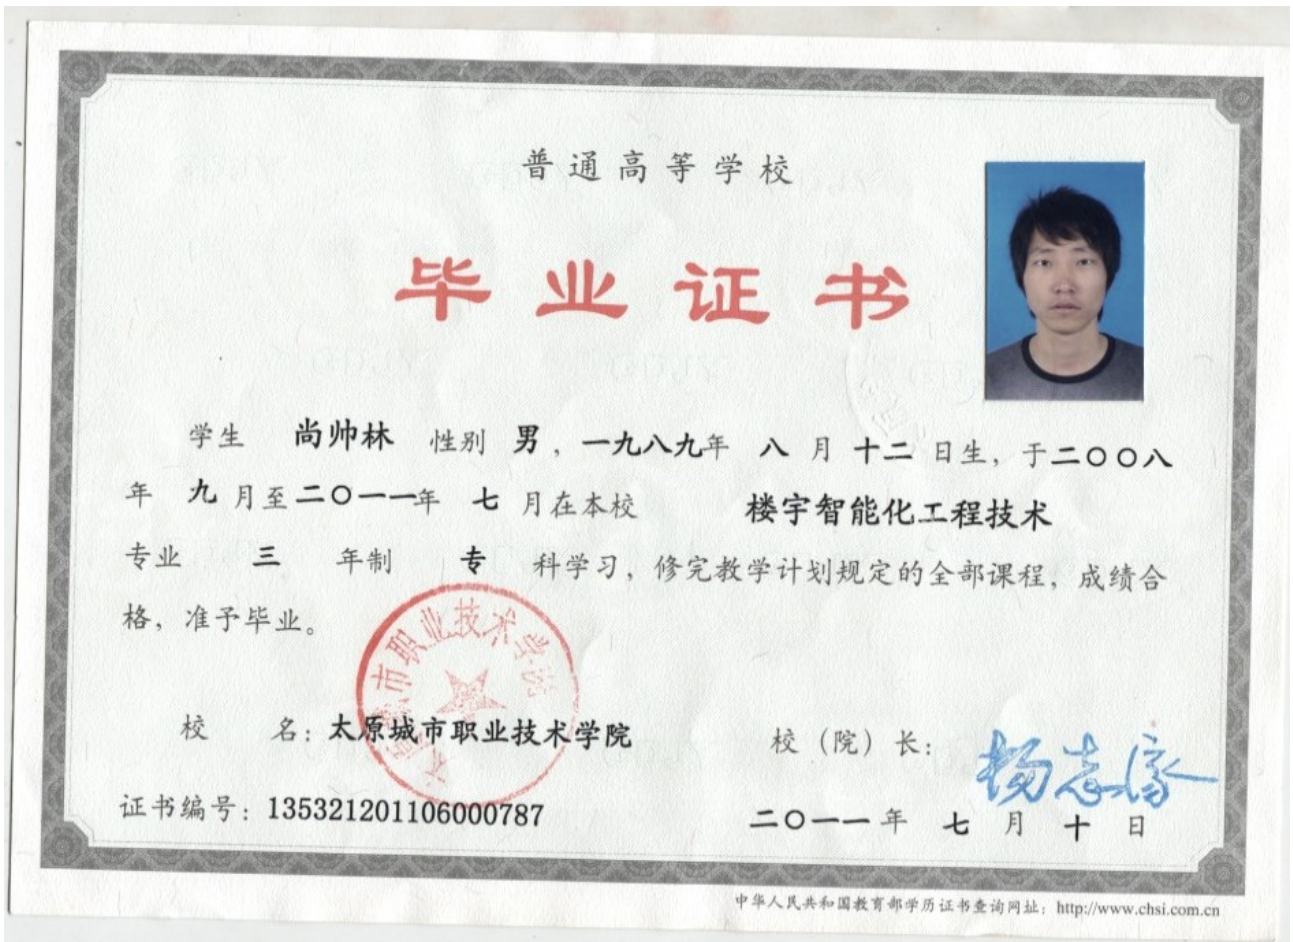 普通高等学校
毕业证书
学生 尚帅林 性别 男，一九八九年 八 月 十二 日生，于二〇〇八
年 九 月至二〇一一年 七 月在本校 楼宇智能化工程技术
专业 三 年制 专 科学习，修完教学计划规定的全部课程，成绩合
格，准予毕业。
市职业技术学院
校 名：太原城市职业技术学院
校（院）长：
证书编号：135321201106000787
二〇一一年 七 月 十 日
中华人民共和国教育部学历证书查询网址：http://www.chsi.com.cn